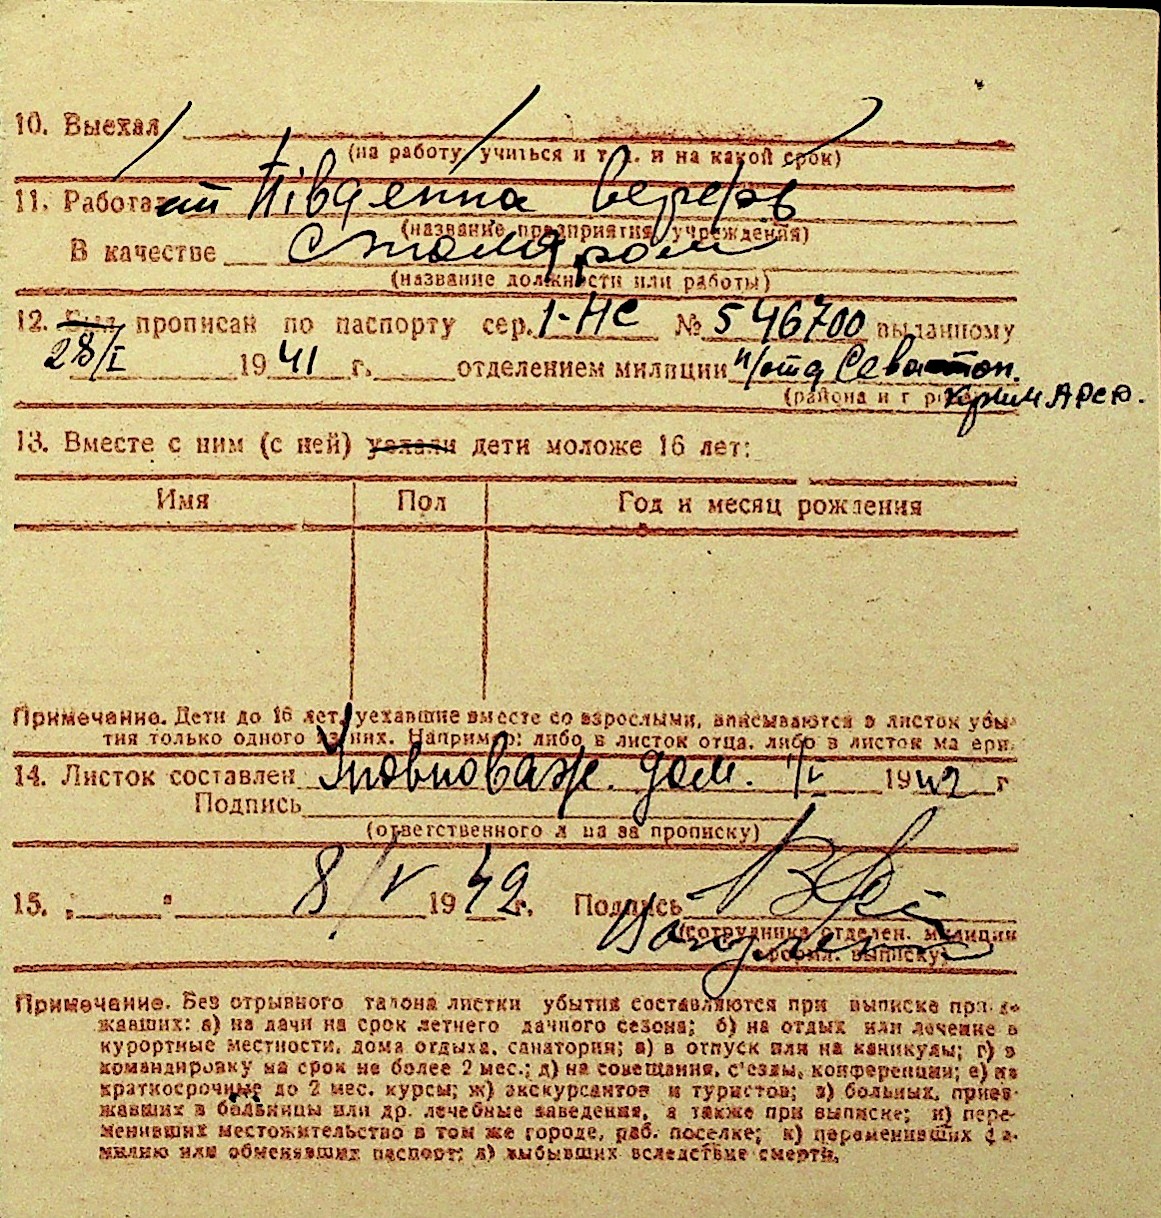 10. Выехал
(на работу, учиться и т. д. и на какой срок)
11. Работает Південна верфь
(название предприятия, учреждения)
В качестве столяром
(название должности или работы)
12. Был прописан по паспорту сер. 1-НС № 546700 выданному
28/I 1941 г. отделением милиции Севастоп.
(района и г р Крим АРСР.
13. Вместе с ним (с ней) уехали дети моложе 16 лет:
Имя Пол Год и месяц рождения
Примечание. Дети до 16 лет, уехавшие вместе со взрослыми, вписываются в листок убы-
тия только одного из них. Например: либо в листок отца, либо в листок ма ери.
14. Листок составлен Уповноваж. дом. 1/V 1942 г
Подпись
(ответственного л ца за прописку)
15. " " 8/V 1942 г. Подпись
(сотрудника отделен. милиции
оформл. выписку)
Примечание. Без отрывного талона листки убытия составляются при выписке прож-
жавших: а) на дачи на срок летнего дачного сезона; б) на отдых или лечение в
курортные местности, дома отдыха, санатория; в) в отпуск или на каникулы; г) в
командировку на срок не более 2 мес.; д) на совещания, с'езды, конференции; е) на
краткосрочные до 2 мес. курсы; ж) экскурсантов и туристов; з) больных, приез-
жавших в больницы или др. лечебные заведения, а также при выписке; и) пере-
менивших местожительство в том же городе, раб. поселке; к) переменивших фа-
милию или обменявших паспорт; л) выбывших вследствие смерти.